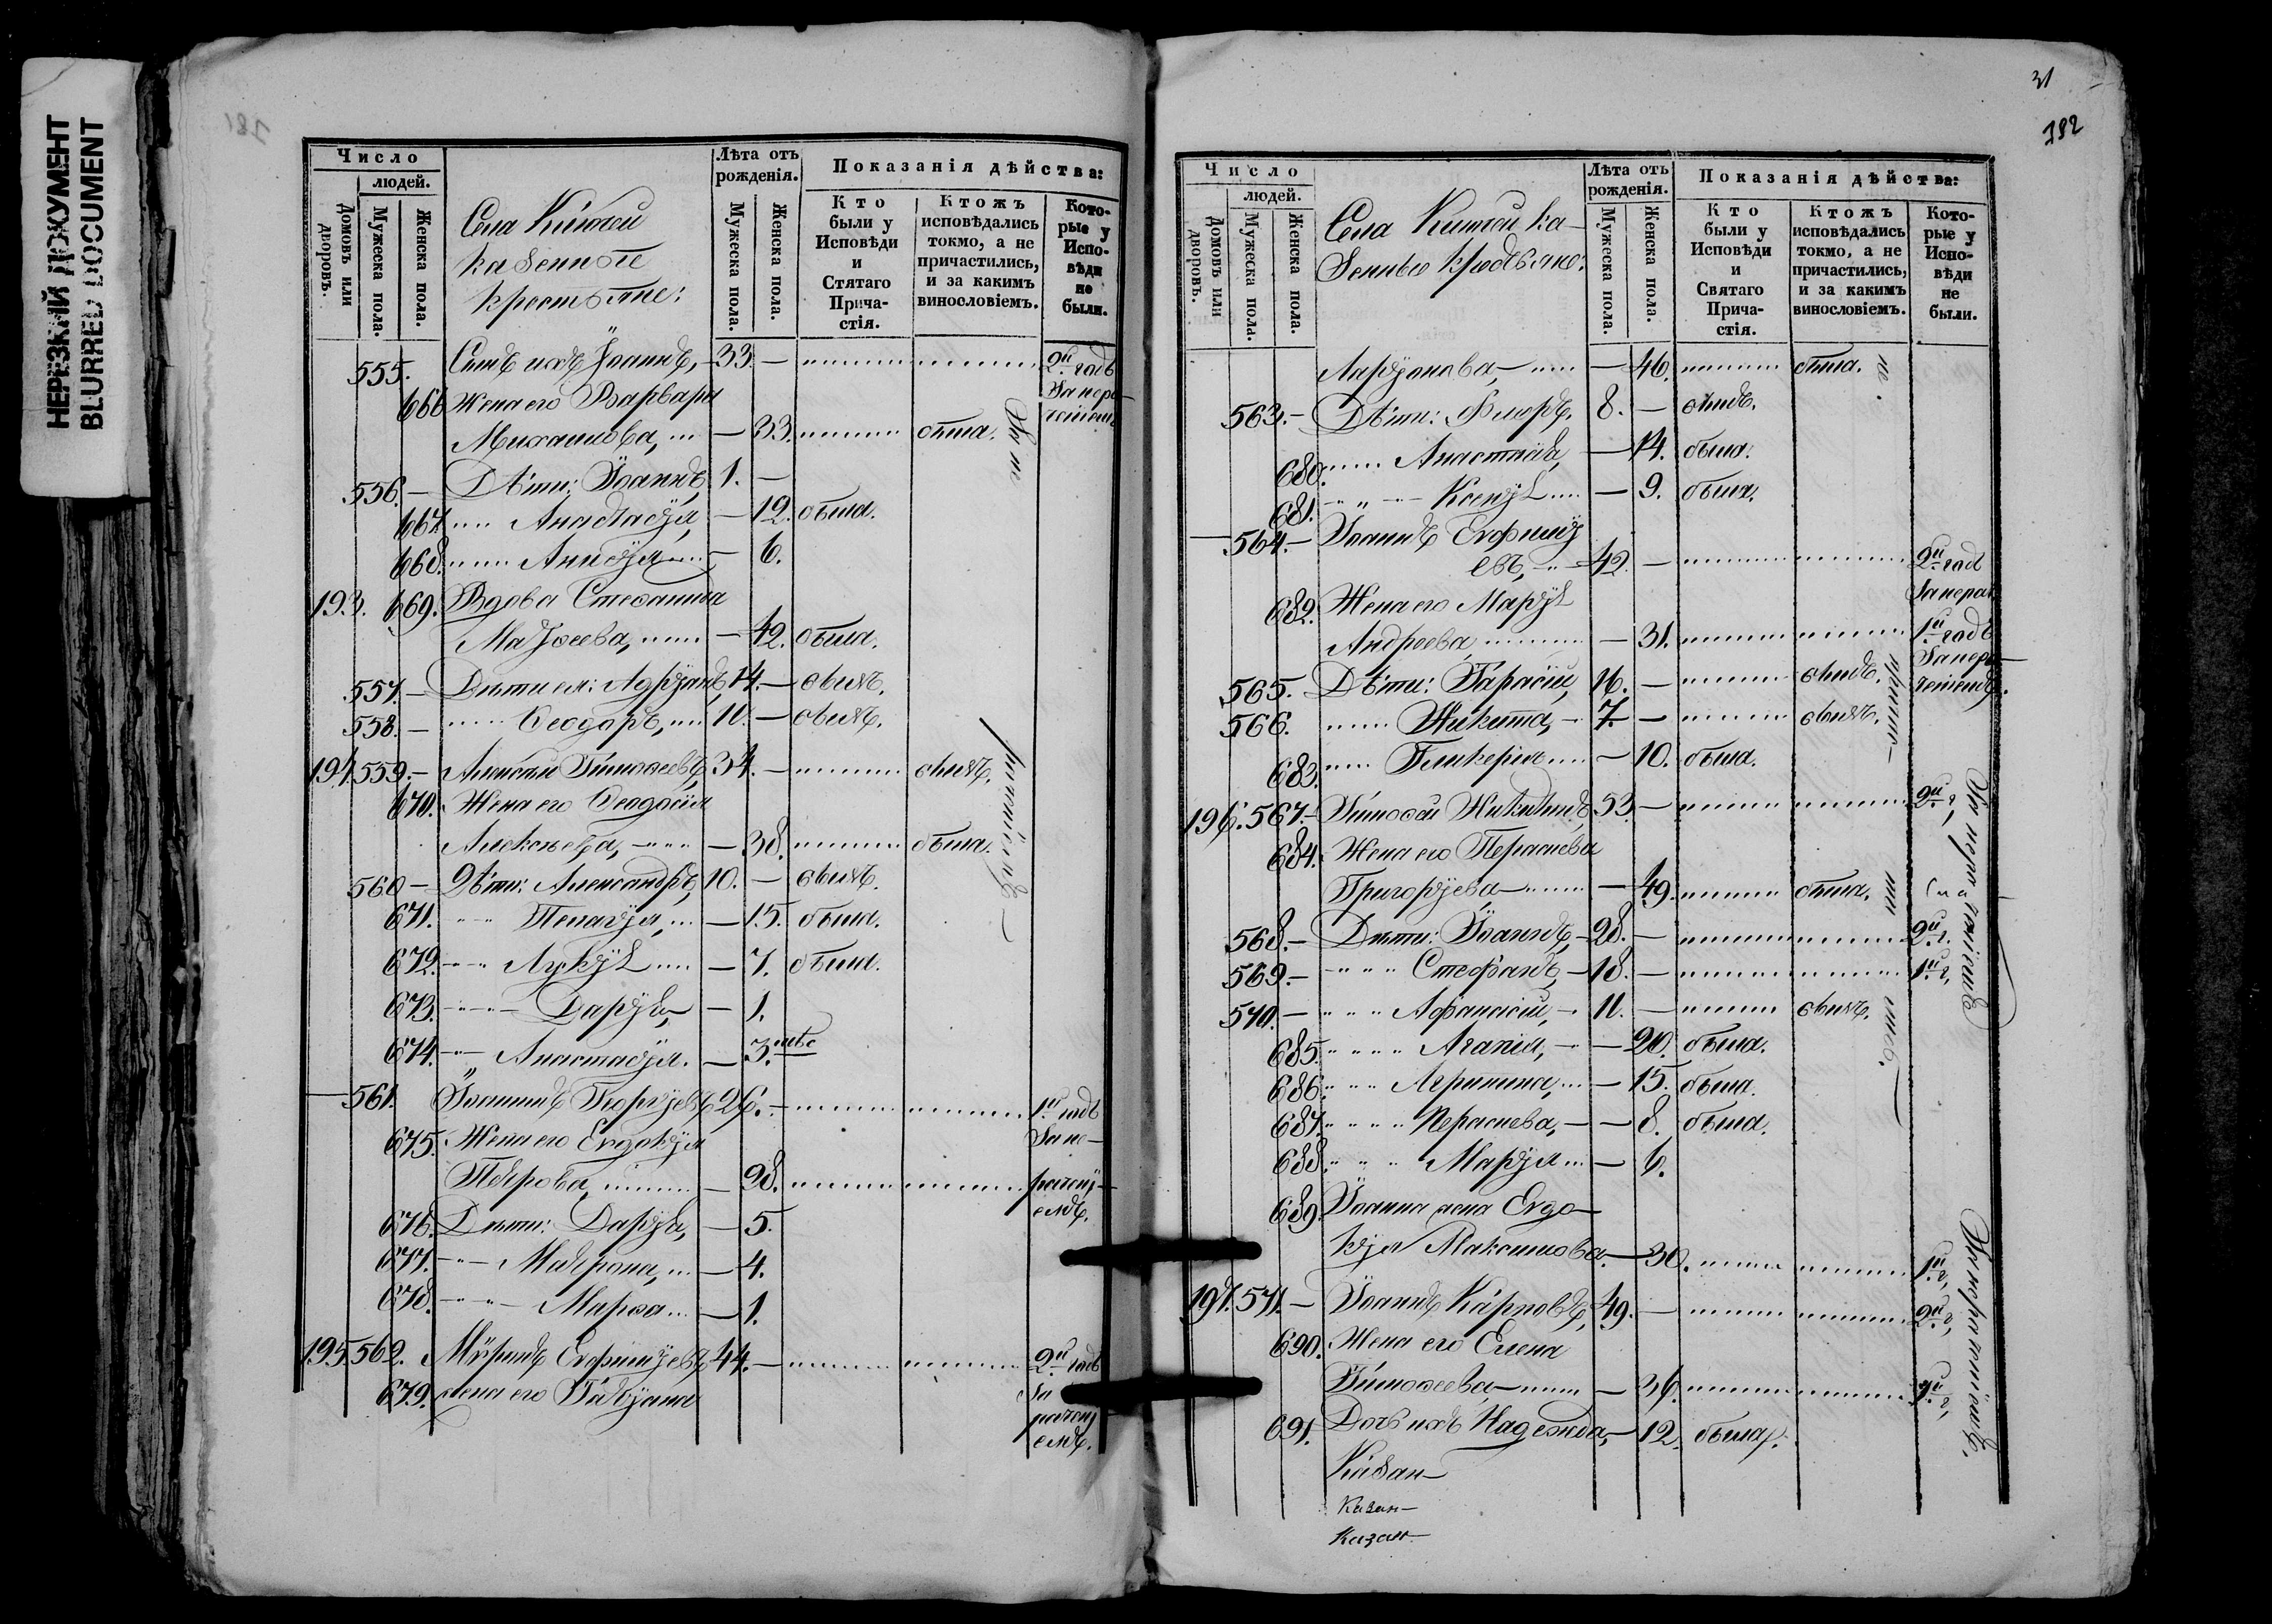 НЕРЕЗКИЙ ДОКУМЕНТ
BLURRED DOCUMENT
181
Число
людей.
Домовъ или дворовъ.
Мужеска пола.
Женска пола.
Лѣта отъ рожденія.
Мужеска пола.
Женска пола.
Показанія дѣйства:
Кто были у Исповѣди и Стятаго Прича-стія.
Ктожъ исповѣдались токмо, а не причастились, и за какимъ винословіемъ.
Кото-рые у Испо-вѣди не были.
Села Китой
казенноε
крестьяне:
555. Сынъ ихъ Іоаннъ, 33. — 2й годъ
666 Жена его Варвара
Михаилова, — 33. была.
556. — Дѣти: Іоаннъ, 1. —
667. Анастасія, — 12. была.
668. Анисія — 6.
193. 669. Вдова Стефанида
Матѳеева, — 42. была.
557. — Дѣти ея: Адріанъ, 14. — былъ.
558. — Ѳеодоръ, 11. — былъ.
194. 559. — Алексѣй Тимоѳеевъ, 34. — былъ.
670. Жена его Ѳеодосія
Алексѣева, — 38. была.
560 — Дѣти: Александръ, 10. — былъ.
671. Пелагія, — 15. была.
672. Лукія — 7. была.
673. Дарія, — 1.
674. Анастасія. — 3.
561. Іоаннъ Георгіевъ 26. — 1й годъ
675. Жена его Евдокія
Петрова, — 28.
676. Дѣти: Дарія, — 5.
677. Матрона, — 4.
678. Марѳа — 1.
195 562. Миронъ Евфиміевъ 44. — 2й годъ
679. жена его Татіана
31
192
Число
людей.
Домовъ или дворовъ.
Мужеска пола.
Женска пола.
Лѣта отъ рожденія.
Мужеска пола.
Женска пола.
Показанія дѣйства:
Кто были у Исповѣди и Святаго Прича-стія.
Ктожъ исповѣдались токмо, а не причастились, и за какимъ винословіемъ.
Кото-рые у Испо-вѣди не были.
Села Китой ка-
зенные крестьяне:
Ларіонова, — 46. была.
563. — Дѣти: Флоръ, 8. — былъ.
680. Анастасія, — 14. была.
681. Ксенія — 9. была.
564. — Іоаннъ Евфимі
евъ, 42. — 2й годъ
682. Жена его Марія
Андреева, — 31. 1й годъ
565. Дѣти: Тарасій, 16. — былъ.
566. Никита, 7. — былъ.
683. Гликерія — 10. была.
196. 567. — Тимоѳей Никитинъ, 53. — 2й г,
684. Жена его Параскева
Григоріева, — 49. была.
568. — Дѣти: Іоаннъ, 28. — 2й г.
569. — Стефанъ, 18. — 1й г,
570. — Афанасій, 11. — былъ.
685. Агапія, — 20. была.
686. Агрипина, — 15. была.
687. Параскева, — 8. была.
688. Марія — 6.
689. Іоанна жена Евдо-
кія Максимова. — 30. 1й г,
197. 571. — Іоаннъ Карповъ, 49. — 2й г,
690. Жена его Елена
Тимоѳеева, — 36.
691. Дочь ихъ Надежда, — 12. была.
Казан—
Казан—
Казан—